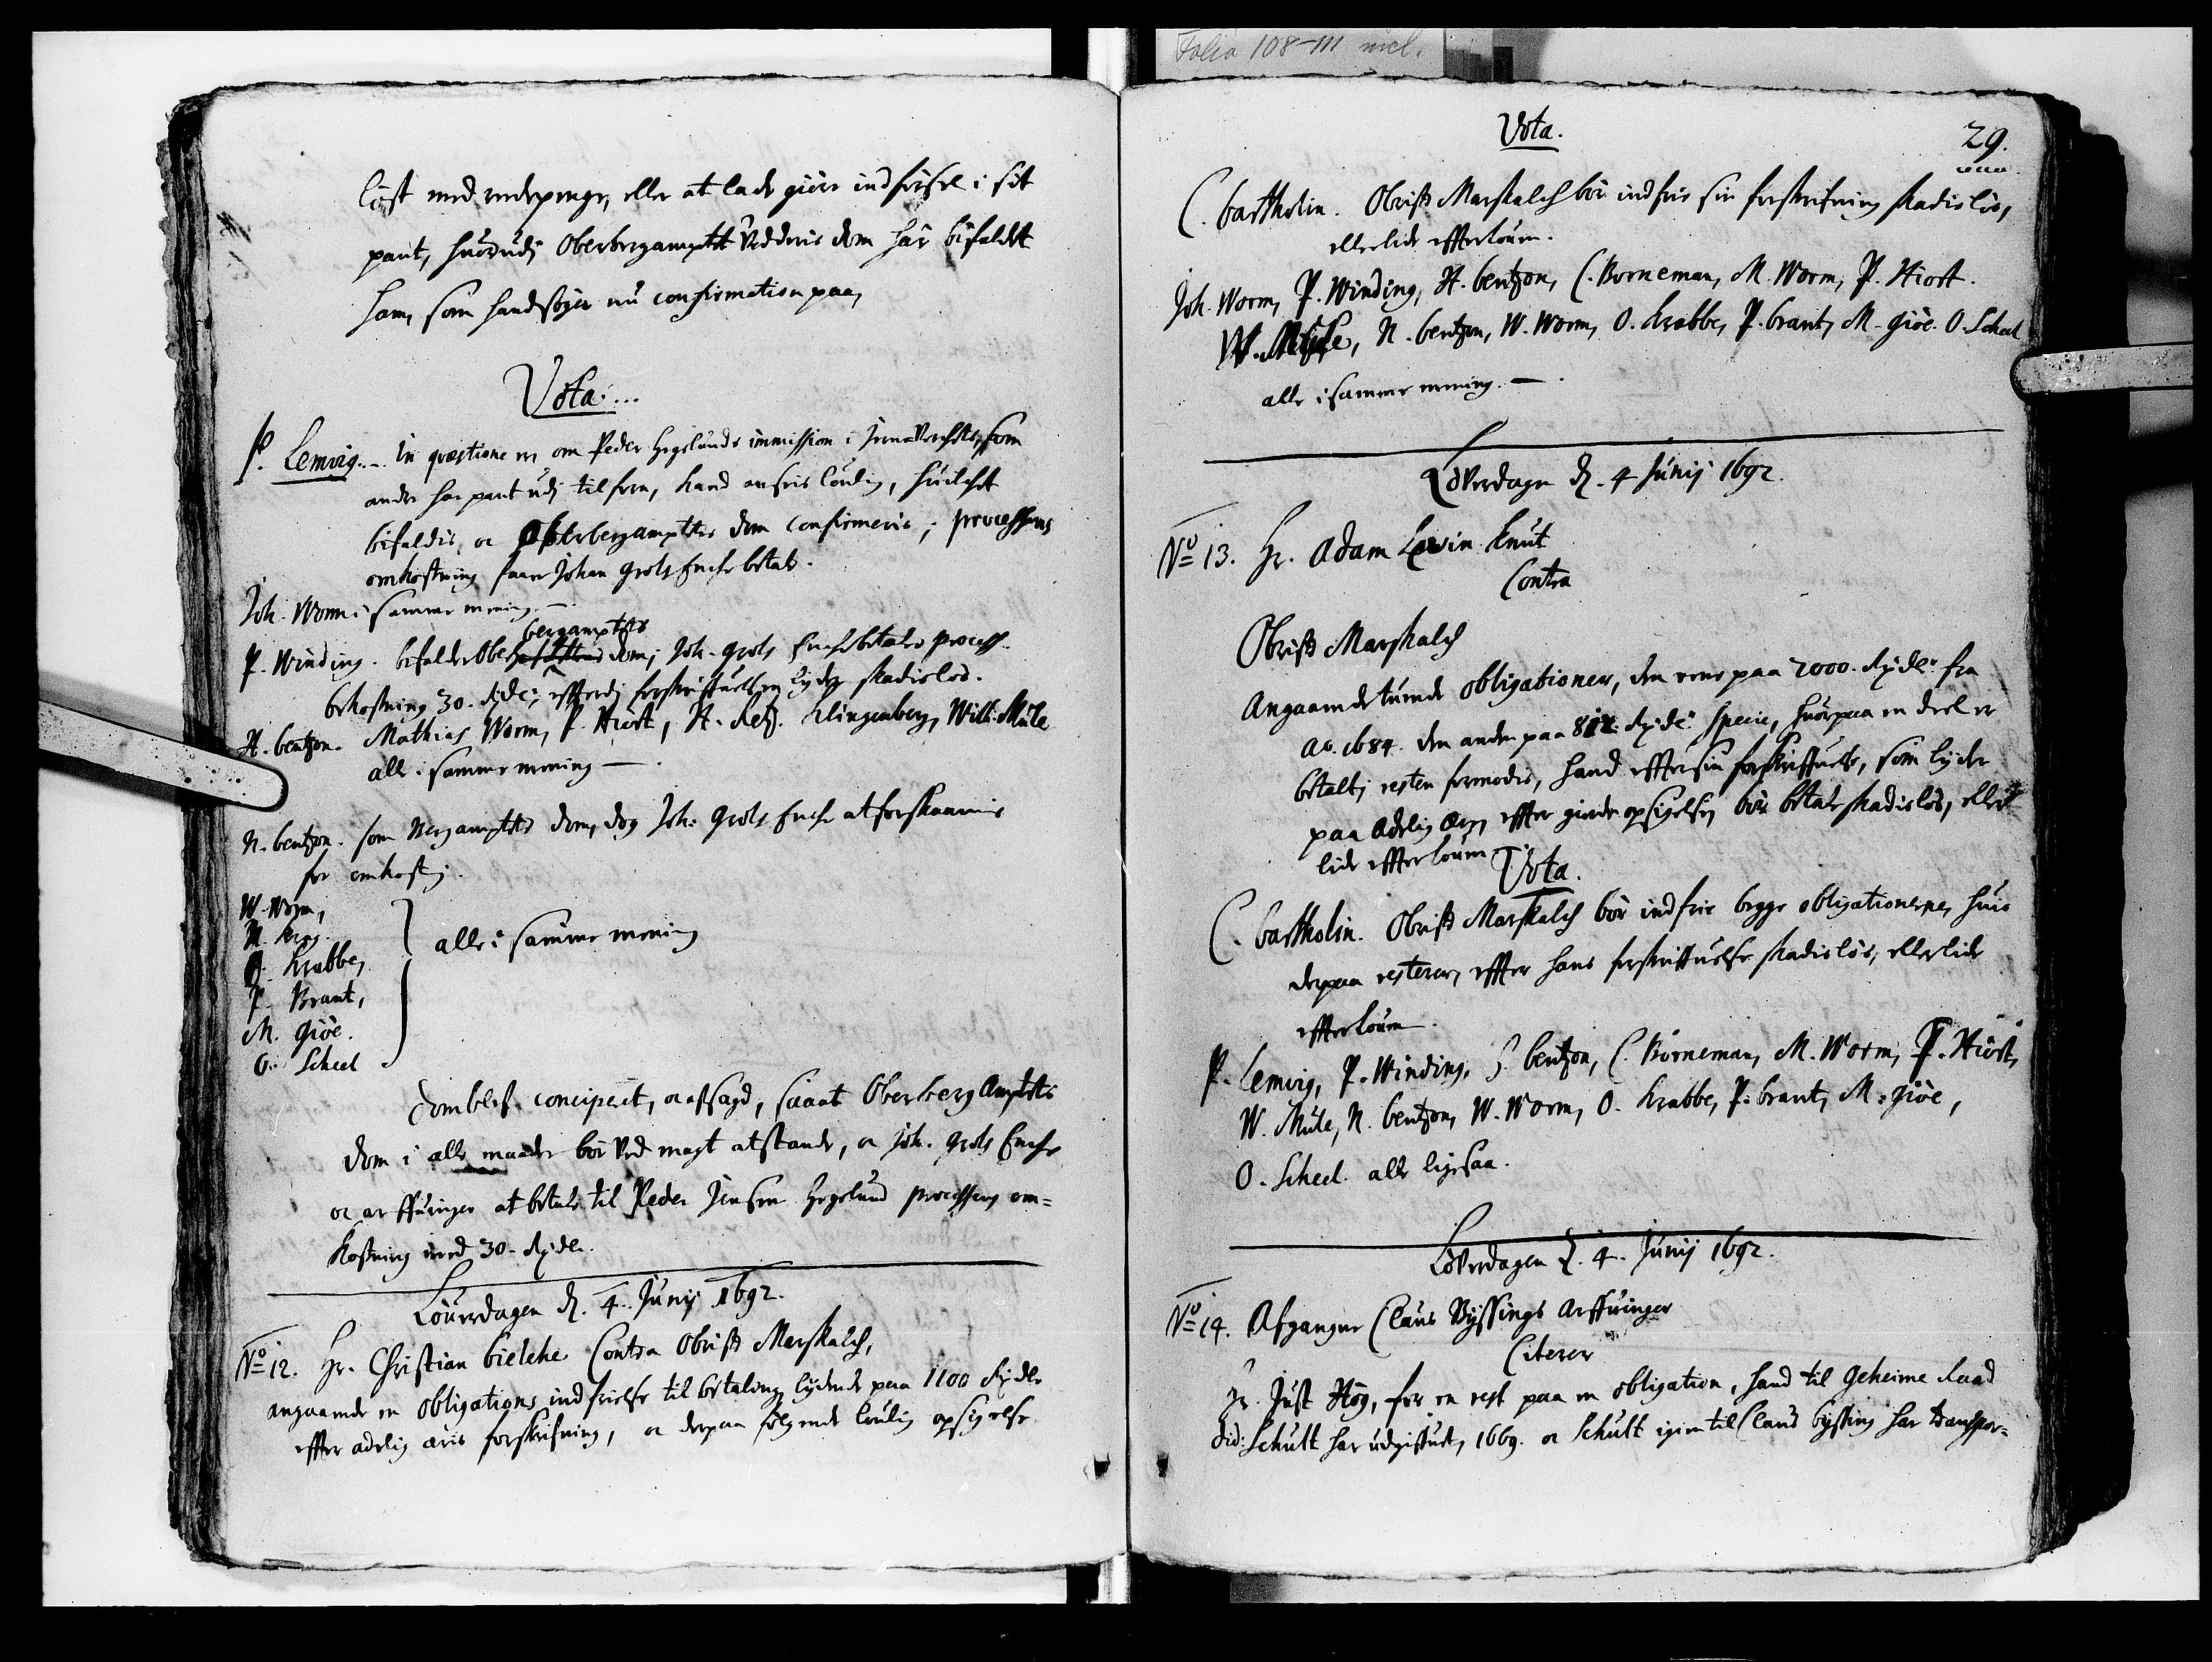 Folio 108-111 incl.
løst med rede penge, eller at lade giøre indførsel i sit
pant, huorudj Oberbergamptet Vedderis dom har bifaldet
ham, som hand søger nu confirmation paa,
Vota. ...
P. Lemvig. - In qvæstione er om Peder Hegelunds immission i som
andre har pant udj tilforn, hand ansees loulig, huilchet
bifaldis, oc Oberbergamptets dom confirmeris, processens
omkostning faar Johan Grols Enche betale.
Joh. Worm i samme mening. —
P. Winding. bifalder Ober bergamptets dom, Joh. Grols Enche betaler process
bekostning 30. Rixdlr, effterdj forskriffuelsen lyder skadisløs.
H. bentzon. Mathias Worm, P. Hiort, H. Retz. Klingenberg, Will: Mule
alle i samme mening — .
N. bentzon. som Bergamptets dom, dog Joh: Grols Enche at forskaanis
for omkostning.
W. Worm,
N. Krag.
O. Krabbe,
P. Brant,
M. Giöe.
O. Scheel
alle i samme mening
Dom blef conciperet, oc afsagd, saa at Oberberg Amptets
dom i alle maader bør ved magt at stande, oc Joh. Grols Enche
oc arffuinger at betale til Peder Jensen Hegelund processens om=
kostning med 30. Rixdlr.
Löuerdagen d. 4. Junij 1692.
No 12. Hr. Christian bielche Contra Obrist Marskalch,
angaaende en obligations indfrielse til betaling lydende paa 1100 Rixdlr
effter adelig æris forskrifning, oc derpaa følgende loulig opsigelse
Vota.
29.
C. bartholin. Obrist Marskalch bør indfrie sin forskrifning skadisløs,
eller lide effter louen.
Joh. Worm, P. Winding, H. bentzon, C. Borneman, M. Worm, P. Hiort.
W. Mule, N. bentzon, W. Worm, O. Krabbe, P. brant, M. giöe. O. Scheel
alle i samme mening. — .
Löverdagen d. 4 Junij 1692.
No 13. Hr. Adam Levin Knut
Contra
Obrist Marskalch
Angaaende tuende obligationer, den eene paa 2000. Rixdlr fra
Ao. 1684. den anden paa 812. Rixdlr Specie, huorpaa en deel er
betalt, resten formodis, hand effter sin forskriffuelse, som lyder
paa Adelig ære, effter giorde opsigelse, bør betale skadisløs, eller
lide effter louen
Vota.
C. bartholin. Obrist Marskalch bør indfrie begge obligationerne, huis
derpaa resterer, effter hans forskriffuelse skadisløs, eller lide
effter louen.
P. Lemvig, P. Winding, H. bentzon, C. Borneman, M. Worm, P. Hiort,
W. Mule, N. bentzon, W. Worm, O. Krabbe, P. brant, M. giöe,
O. Scheel. alle ligesaa.
Löverdagen d. 4. Junij 1692.
No 14. Afgangne Claus Byssings Arffuinger
Citerer
Hr. Just Høg, for en rest paa en obligation, hand til Geheime Raad
Did: Schult har udgiffuet, 1669. oc Schult igien til Claus byssing har transpor=